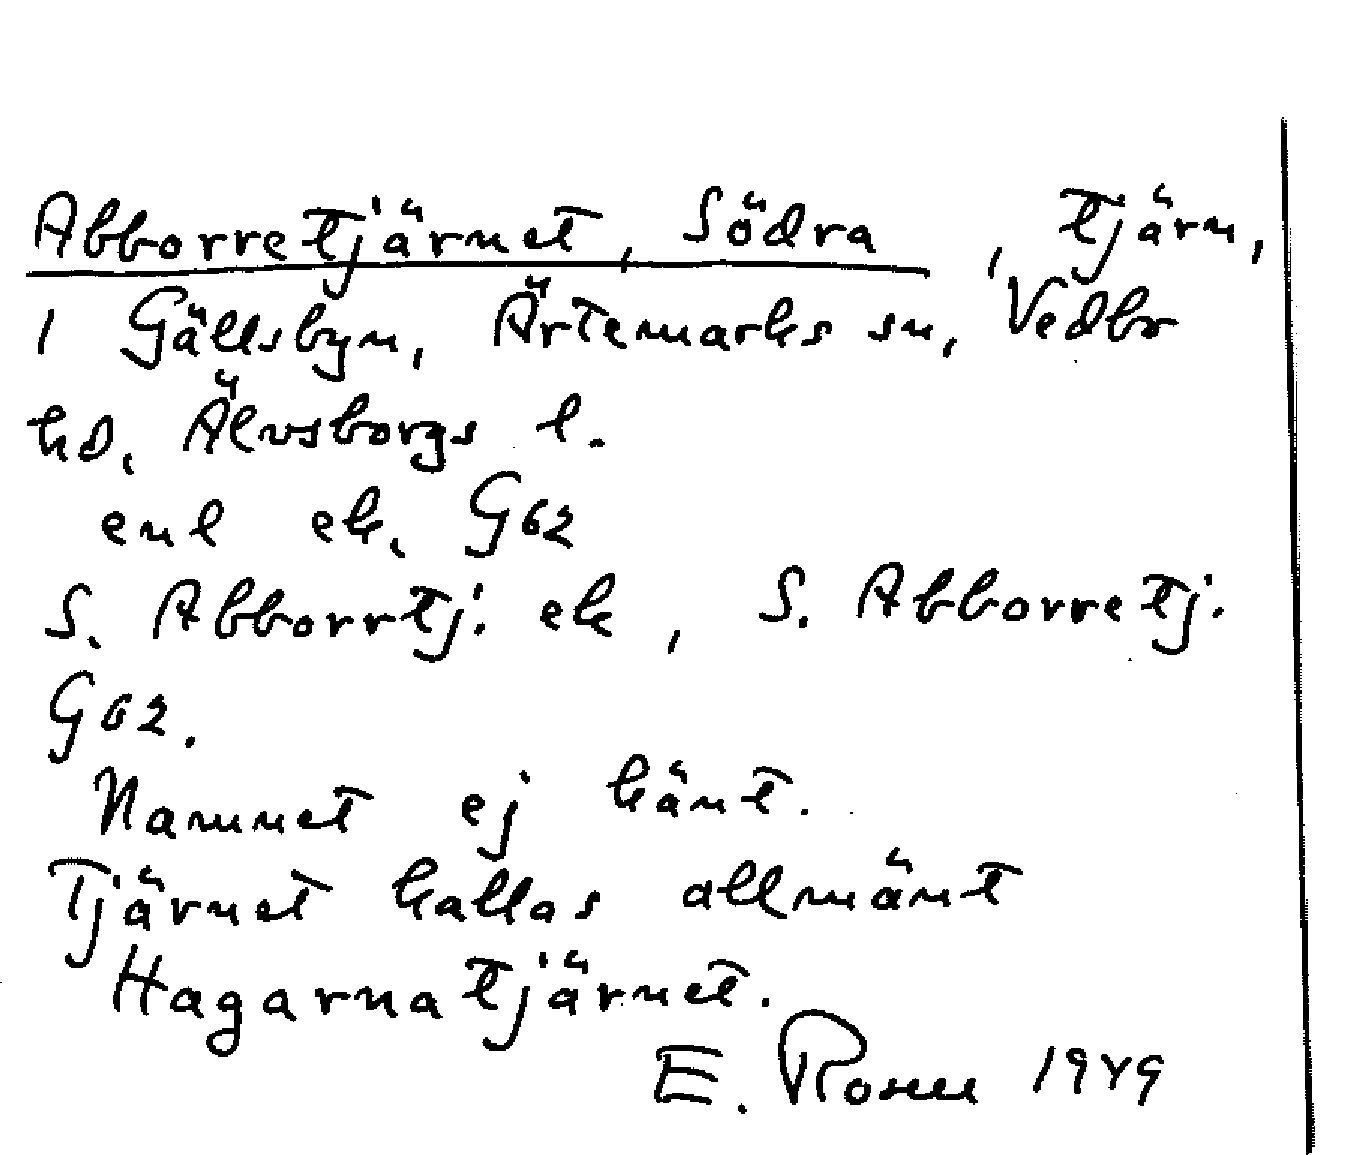 Abborretjärnet, Södra, tjärn,
i Gällsbyn, Ärtemarks sn, Vedbo
hd, Älvsborgs l.
enl ek. G62
S. Abborrtj. ek, S. Abborretj.
G62.
Namnet ej känt.
Tjärnet kallas allmänt
Hagarnatjärnet.
E. Rosell 1949